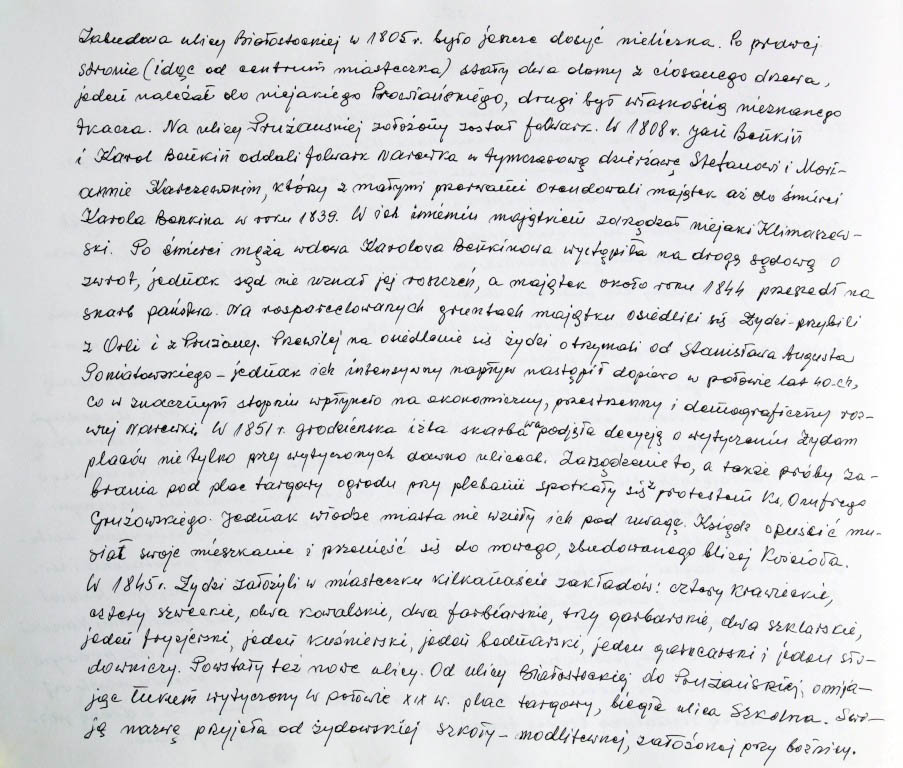 Zabudowa ulicy Białostockiej w 1805 r. było jeszcze dosyć nieliczna. Po prawej
stronie (idąc od centrum miasteczka) stały dwa domy z ciosanego drzewa,
jeden należał do niejakiego Prowiańskiego, drugi był własnością nieznanego
tkacza. Na ulicy Prużańskiej założony został folwark. W 1808 r. Jan Beńkin
i Karol Beńkin oddali folwark Narewka w tymczasową dzierżawę Stefanowi i Mari-
annie Karczewskim, który z małymi przerwami arendowali majątek aż do śmierci
Karola Benkina w roku 1839. W ich imieniu majątkiem zarządzał niejaki Klimaszew-
ski. Po śmierci męża wdowa Karolova Beńkinowa wystąpiła na drogą sądową o
zwrot, jednak sąd nie uznał jej roszczeń, a majątek około roku 1844 przeszedł na
skarb państwa. Na rozparcelowanych gruntach majątku osiedlili się Żydzi - przybili
z Orli i z Prużanej. Przywilej na osiedlenie się żydzi otrzymali od Stanisława Augusta
Poniatowskiego – jednak ich intensywny napływ nastąpił dopiero w połowie lat 40-ch,
co w znacznym stopniu wpłynęło na ekonomiczny, przestrzenny i demograficzny roz-
wój Narewki. W 1851 r. grodzieńska izba skarbowa podjęła decyzją o wytyczeniu Żydom
placów nie tylko przy wytyczonych dawno ulicach. Zarządzenie to, a także próby za-
brania pod plac targowy ogrodu przy plebanii spotkały się z protestem Ks. Onufrego
Grużowskiego. Jednak władze miasta nie wzieły ich pod uwagę. Ksiądz opuścić mu-
siał swoje mieszkanie i przenieść się do nowego, zbudowanego bliżej Kościoła.
W 1845 r. Żydzi założyli w miasteczku kilkanaście zakładów: cztery krawieckie,
cztery szweckie, dwa kowalskie, dwa farbiarskie, trzy garbarskie, dwa szklarskie,
jeden fryzjerski, jeden kuśnierski, jeden bednarski, jeden garncarski i jeden sło-
downiczy. Powstały też nowe ulicy. Od ulicy Białostockiej do Prużańskiej, omija-
jąc łukiem wytyczony w połowie XIX w. plac targowy, biegła ulica Szkolna. Swo-
ją nazwę przyjęła od żydowskiej szkoły – modlitewnej, założonej przy bożnicy.